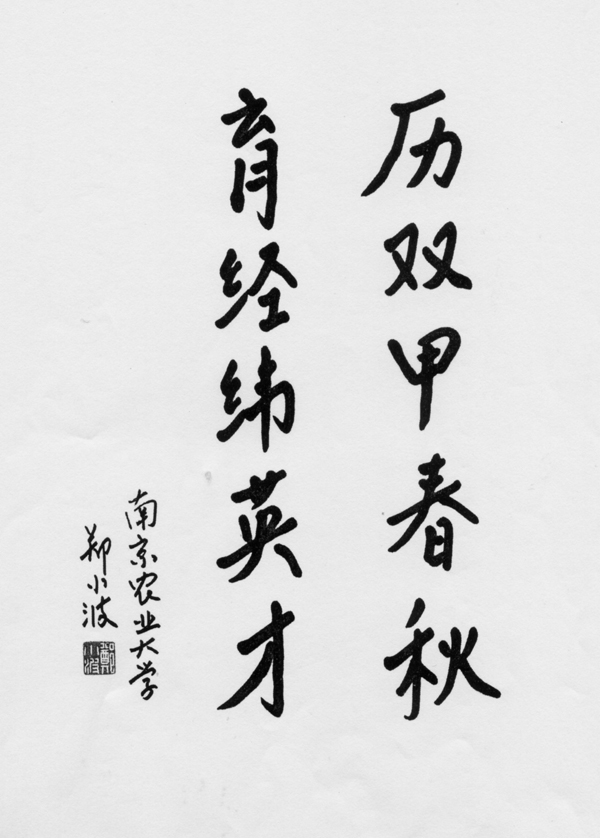 历双甲春秋
育经纬英才
南京农业大学
郑小波
鄭小波